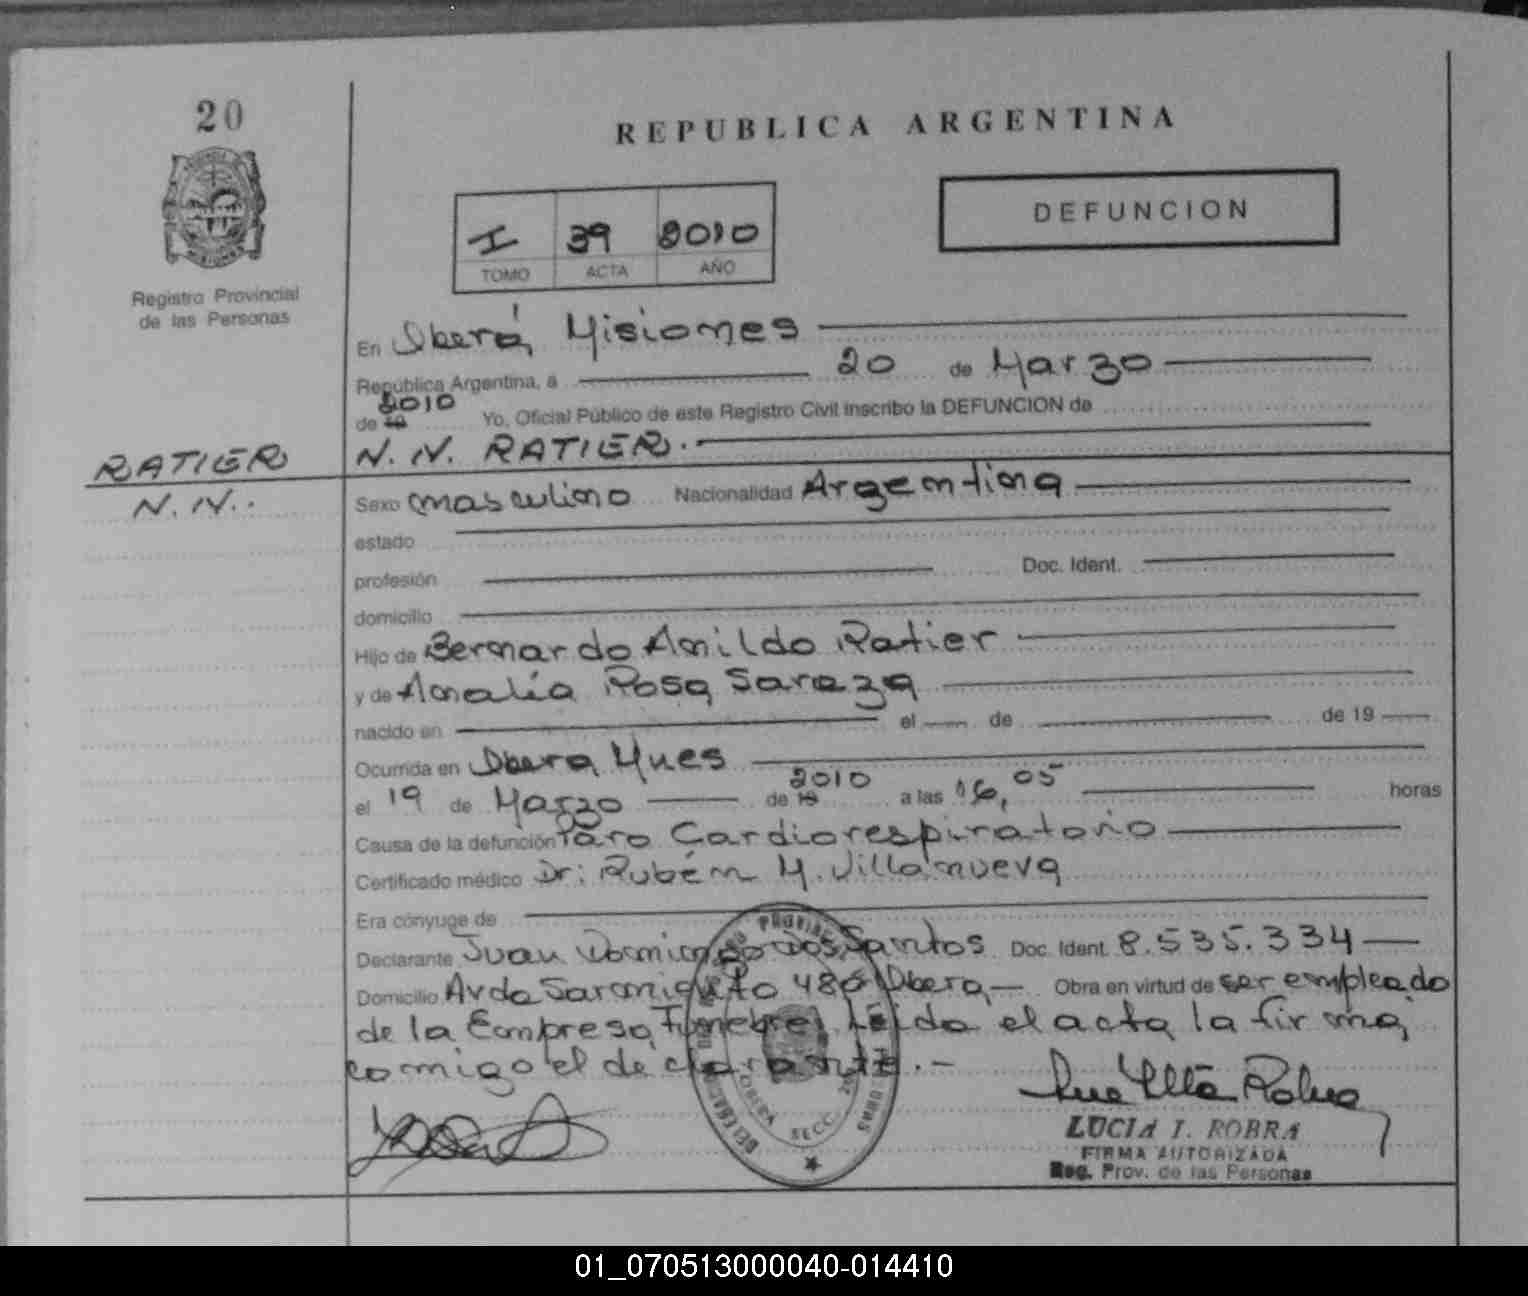 20
REPUBLICA ARGENTINA
DEFUNCION
I 39 2010
TOMO ACTA AÑO
Registro Provincial
de las Personas
En Oberá, Misiones
República Argentina, a 20 de Marzo
de 19 2010 Yo, Oficial Público de este Registro Civil inscribo la DEFUNCION de
RATIER N. N. RATIER.
N. N.. Sexo masculino Nacionalidad Argentina
estado
profesión Doc. Ident.
domicilio
Hijo de Bernardo Anildo Ratier
y de Amalia Rosa Saraza
nacido en el de de 19
Ocurrida en Obera Mnes
el 19 de Marzo de 19 2010 a las 16,05 horas
Causa de la defunción Paro Cardiorespiratorio
Certificado médico Dr: Rubén M. Villanueva
Era cónyuge de
Declarante Juan Domingo Dos Santos Doc. Ident. 8.535.334
Domicilio Avda Sarmiento 486 Obera, Obra en virtud de ser empleado
de la Empresa Funebre, Leida el acta la firma,
comigo el declarante.-
LUCIA I. ROBRA
FIRMA AUTORIZADA
Reg. Prov. de las Personas
OBERA SECC.
01_070513000040-014410